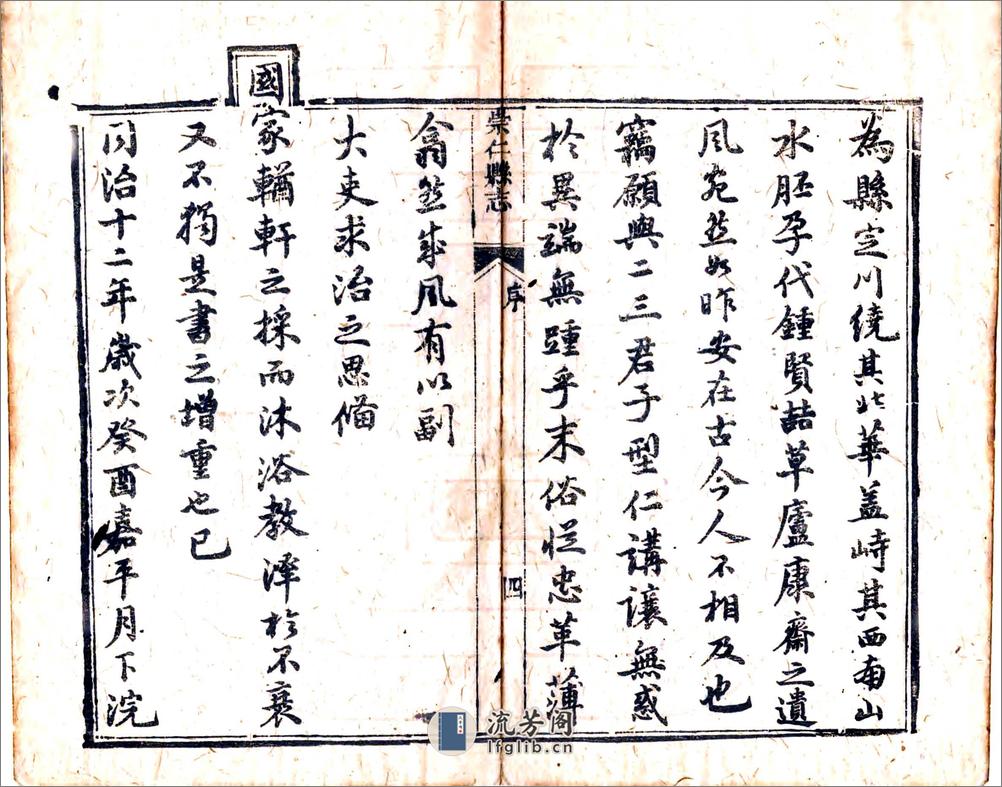 為縣定川繞其北華盖峙其西南山
水胚孕代鍾賢喆草廬康齋之遺
風宛然如昨安在古今人不相及也
竊願與二三君子型仁講讓無惑
於異端無踵乎末俗從忠革薄
崇仁縣志
序
四
翕然成風有以副
大吏求治之思備
國家輶軒之採而沐浴教澤於不衰
又不獨是書之增重也已
同治十二年歲次癸酉嘉平月下浣
流芳阁
lfglib.cn